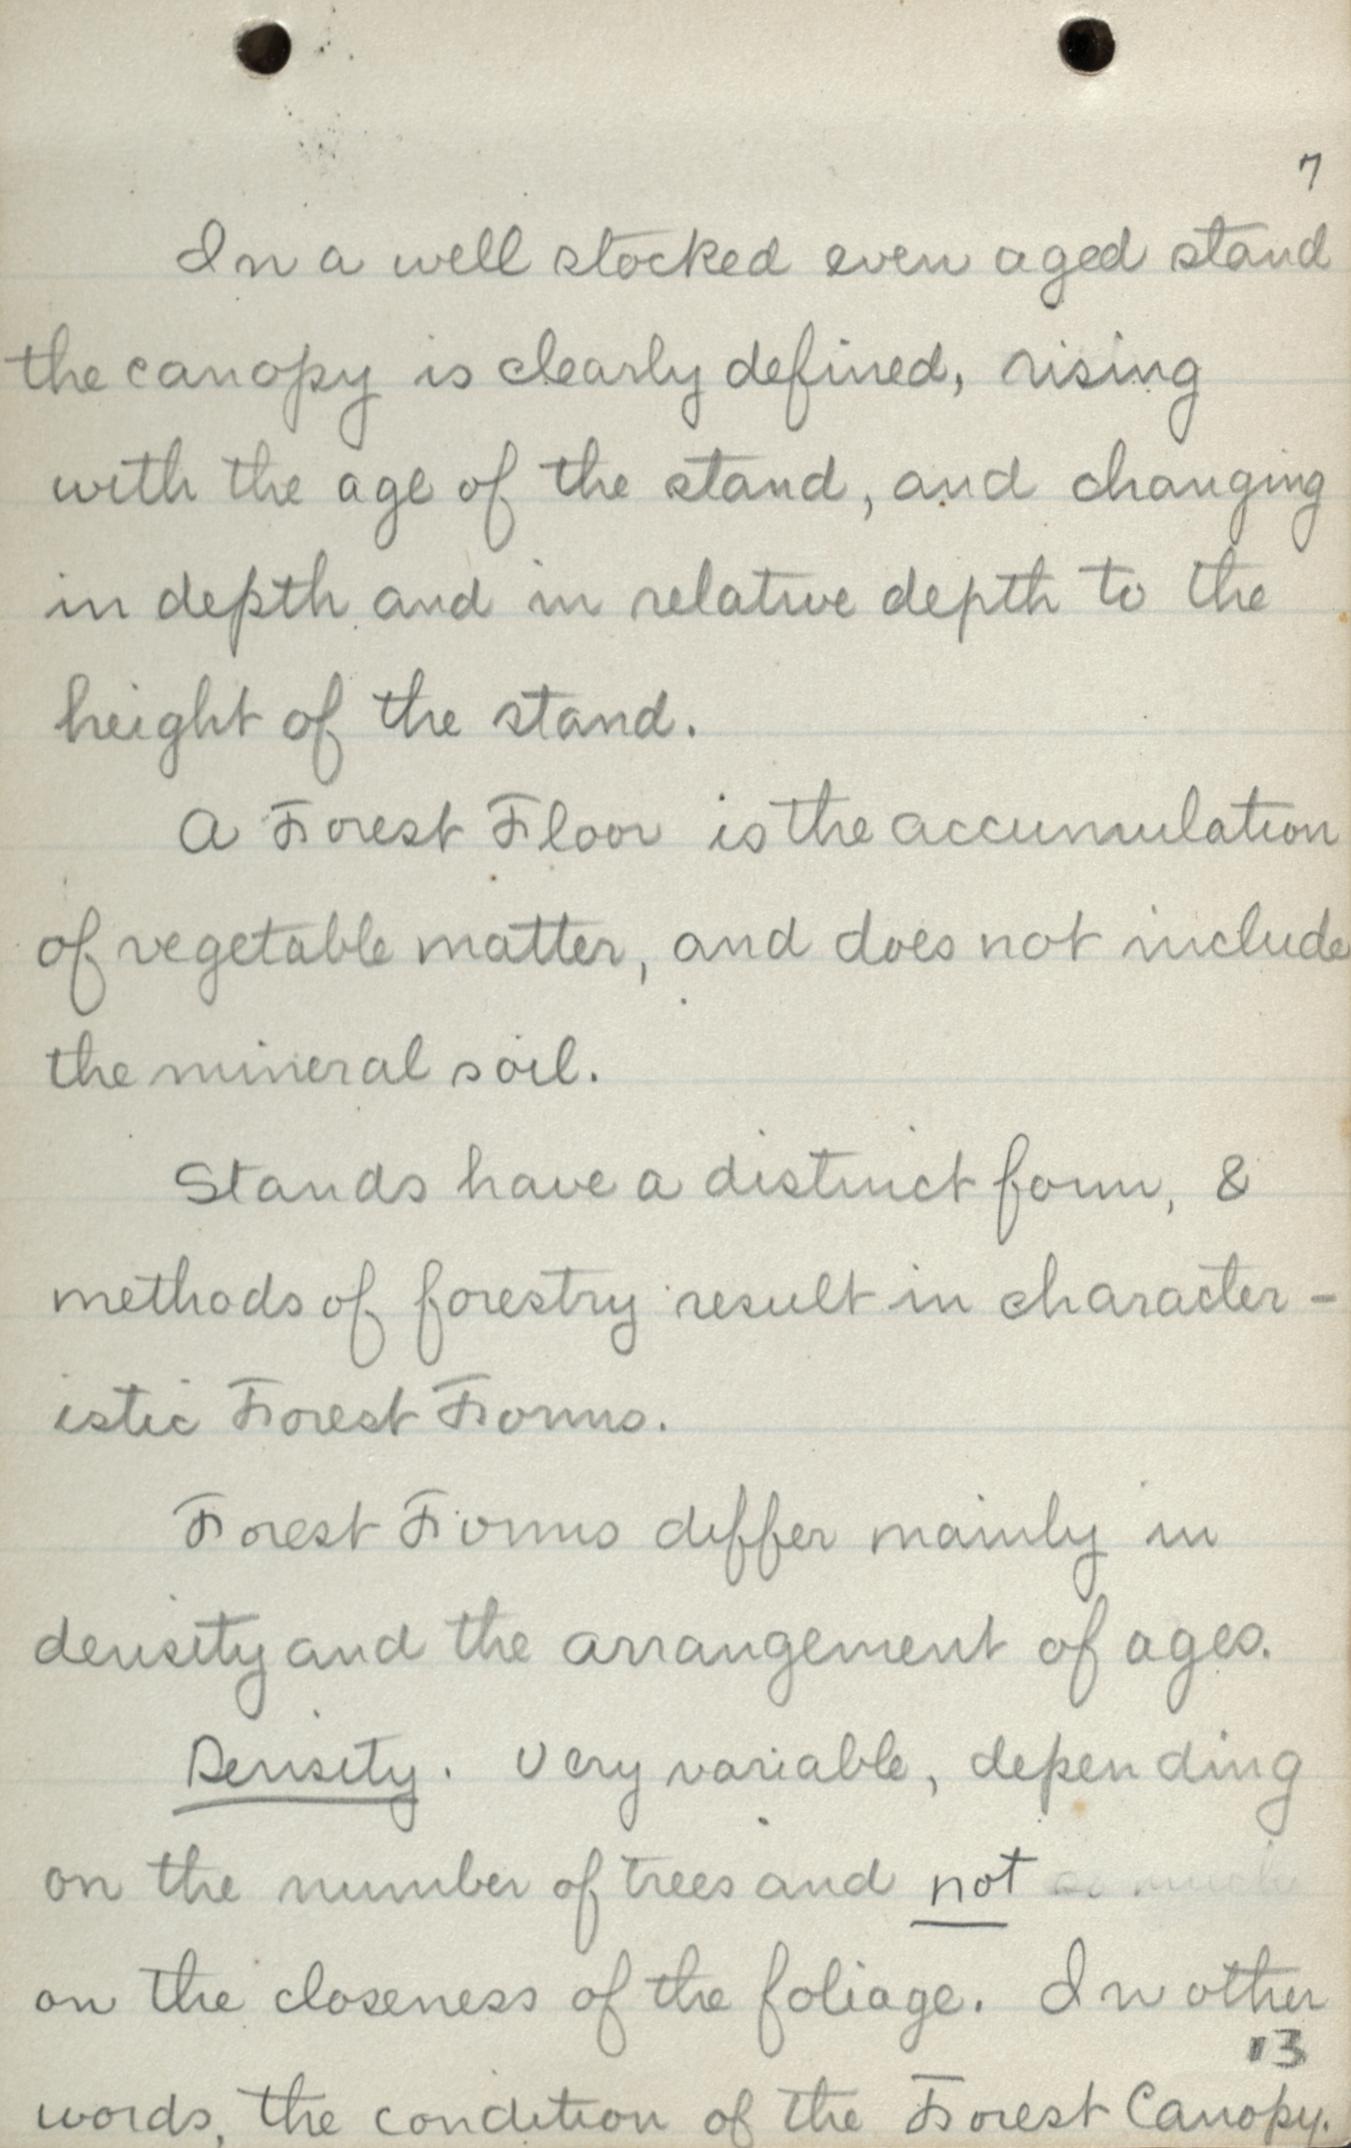 7
In a well stocked even aged stand
the canopy is clearly defined, rising
with the age of the stand, and changing
in depth and in relative depth to the
height of the stand.
A Forest Floor is the accumulation
of vegetable matter, and does not include
the mineral soil.
Stands have a distinct form, &
methods of forestry result in character-
istic Forest Forms.
Forest Forms differ mainly in
density and the arrangement of ages.
Density. Very variable, depending
on the number of trees and not so much
on the closeness of the foliage. In other
13
words, the condition of the Forest Canopy.